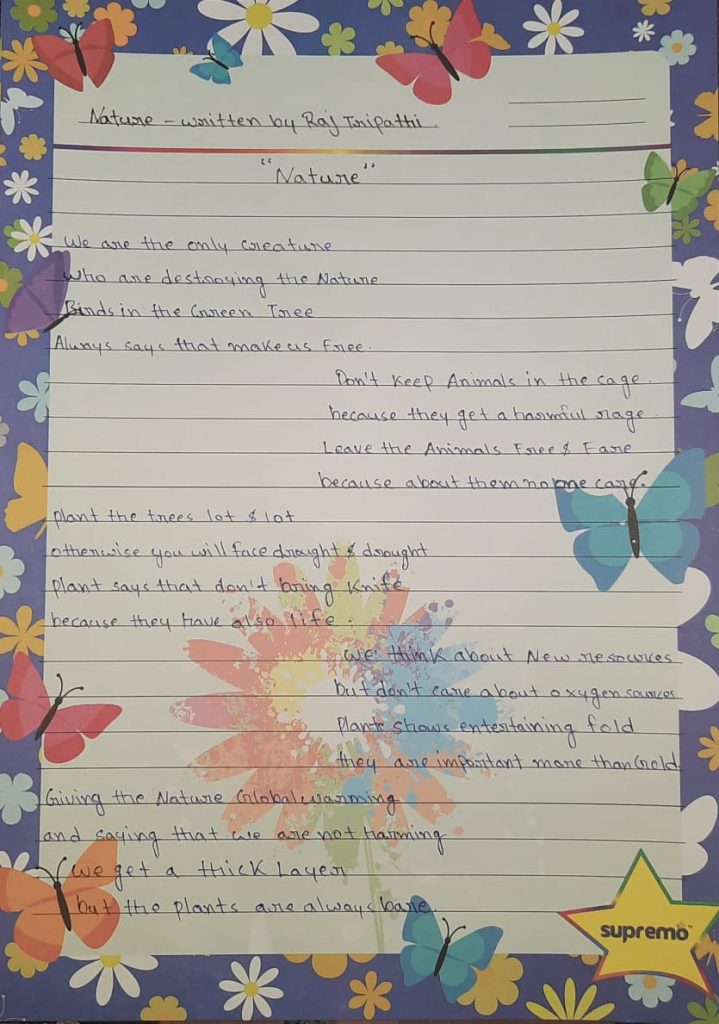 Nature - written by Raj Tripathi.
"Nature"
We are the only creature
who are destroying the Nature
Birds in the Green Tree
Always says that make us Free.
Don't Keep Animals in the cage.
because they get a harmful rage
Leave the Animals Free & Fare
because about them no one care.
plant the trees lot & lot
otherwise you will face drought & drought
plant says that don't bring Knife
because they have also life.
we think about New resources
but don't care about oxygen sources
Plants shows entertaining fold
they are important more than Gold.
Giving the Nature Global warming
and saying that we are not harming
we get a thick Layer
but the plants are always bare.
supremo™